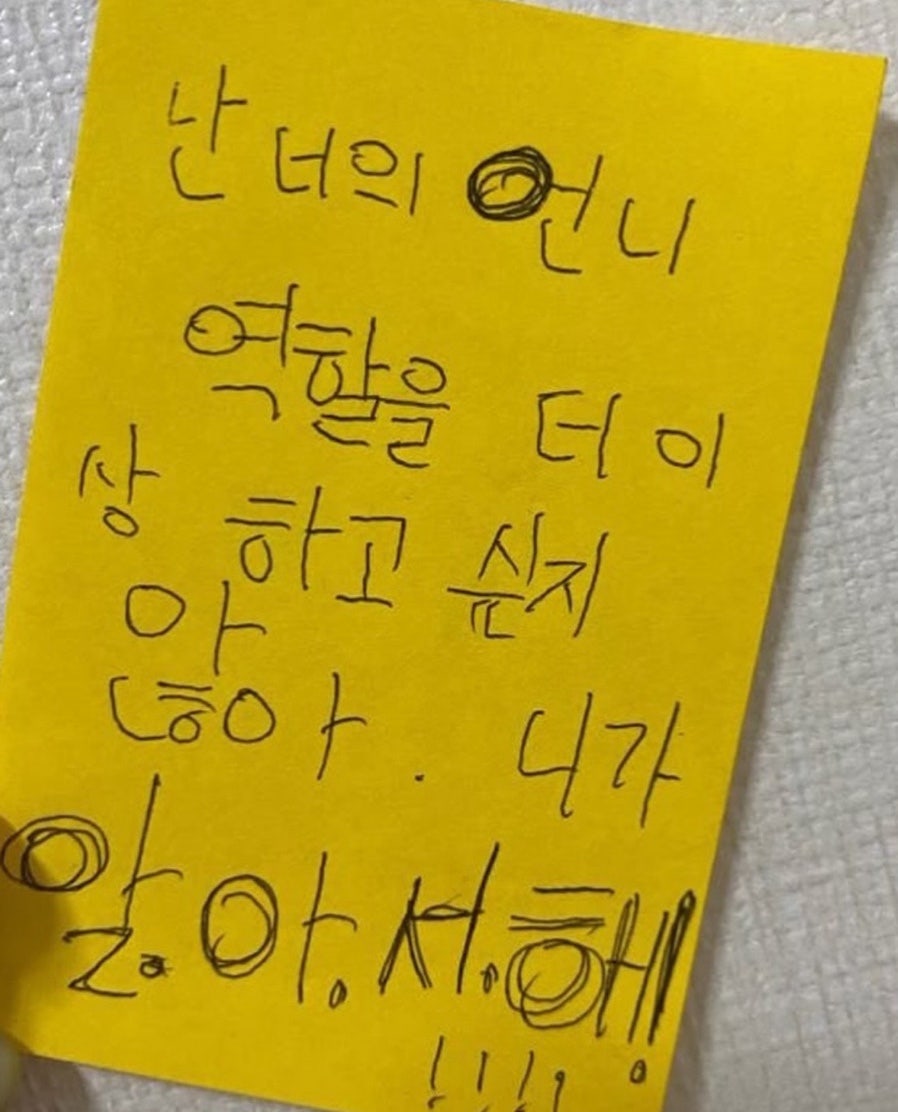 난 너의 언니
역할을 터 이
상 하고 싶지
안
ㄶ아. 니가
알.아.서.해!
!!!!